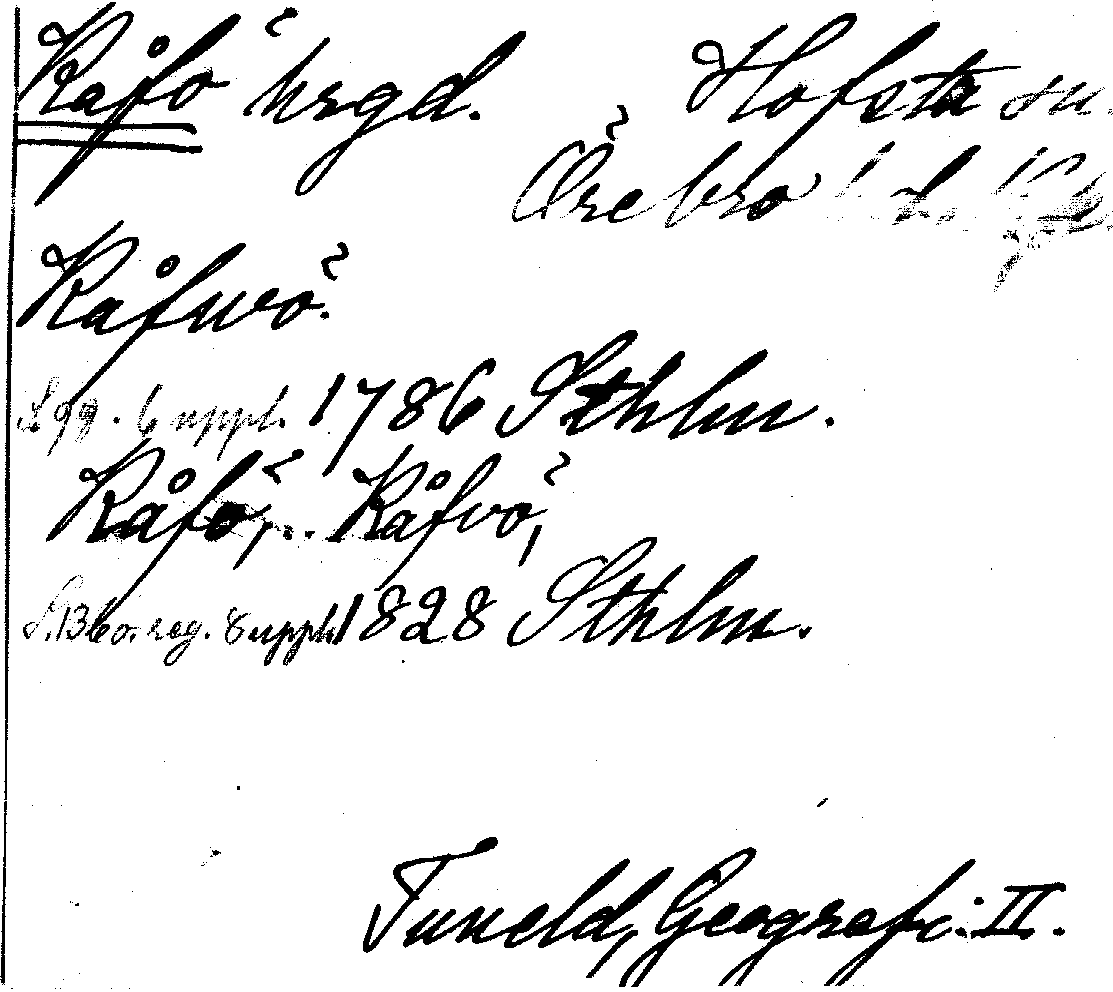 Kåfö hrgd. Hofsta sn.
Örebro
Kåfwö.
S. 99. 6 uppl. 1786 Sthlm.
Kåfö, .. Kåfvö,
S. 136 o. reg. 8 uppl. 1828 Sthlm.
Tuneld, Geografi. II.